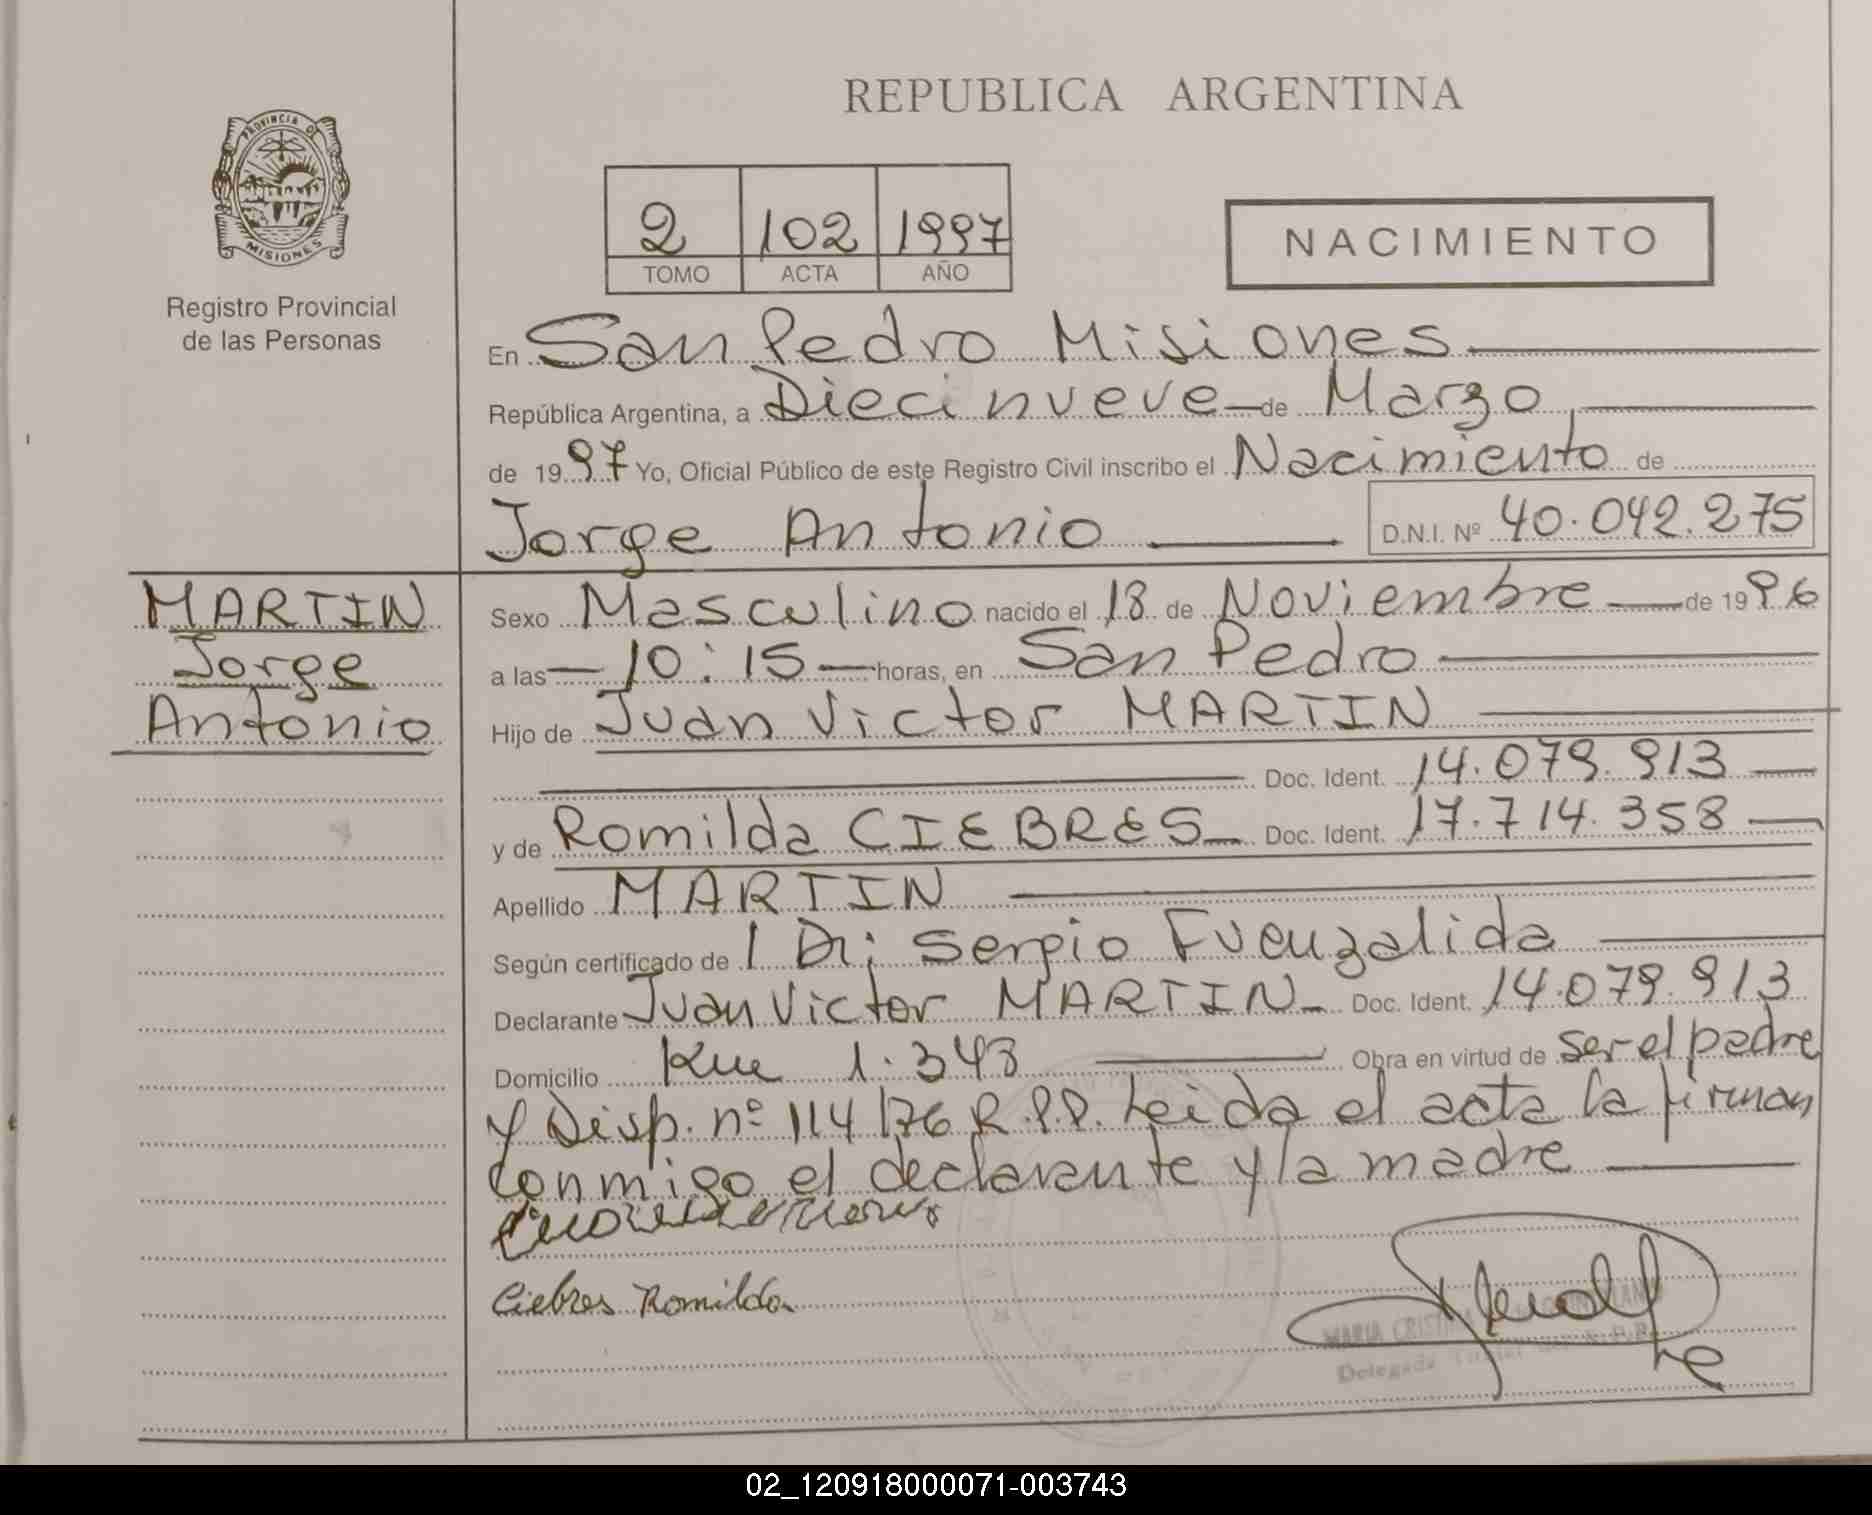 REPUBLICA ARGENTINA
PROVINCIA DE
MISIONES
Registro Provincial
de las Personas
2 102 1997
TOMO ACTA AÑO
NACIMIENTO
En San Pedro Misiones
República Argentina, a Diecinueve de Marzo
de 1997 Yo, Oficial Público de este Registro Civil inscribo el Nacimiento de
Jorge Antonio D.N.I. Nº 40.042.275
MARTIN
Jorge
Antonio
Sexo Masculino nacido el 18 de Noviembre de 1996
a las 10:15 horas, en San Pedro
Hijo de Juan Victor MARTIN
Doc. Ident. 14.079.913
y de Romilda CIEBRES Doc. Ident. 17.714.358
Apellido MARTIN
Según certificado de Dr: Sergio Fuenzalida
Declarante Juan Victor MARTIN Doc. Ident. 14.079.913
Domicilio Km 1.343 Obra en virtud de ser el padre
y Disp. nº 114/76 R.P.P. Leida el acta la firman
conmigo el declarante y la madre
Ciebres Romilda
MARIA CRISTINA
Delegada Titular
02_120918000071-003743